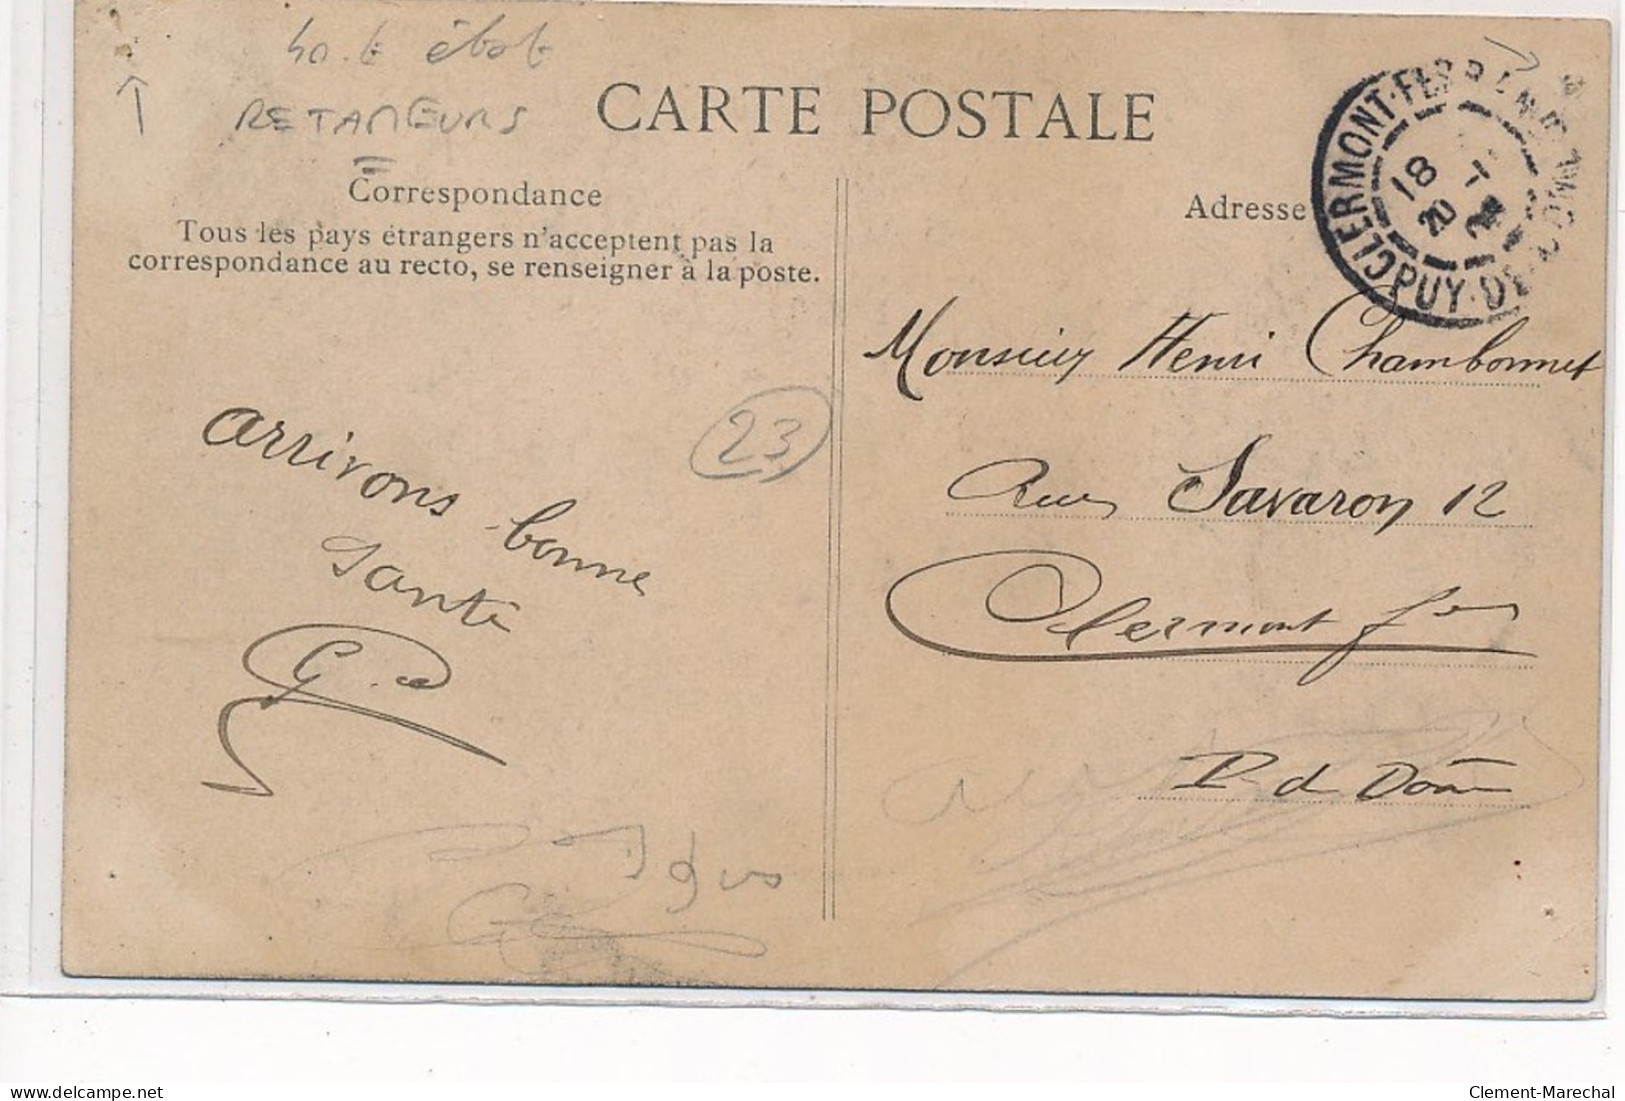 RETAMEURS
CARTE POSTALE
Correspondance
Tous les pays étrangers n'acceptent pas la
correspondance au recto, se renseigner à la poste.
Adresse
CLERMONT-FERRAND
18
20
PUY-DE-DOME
Monsieur Henri Chambonnet
Rue Savaron 12
Clermont fd
P. d Dôme
23
arrivons bonne
santé
delcampe.net
Clement-Marechal